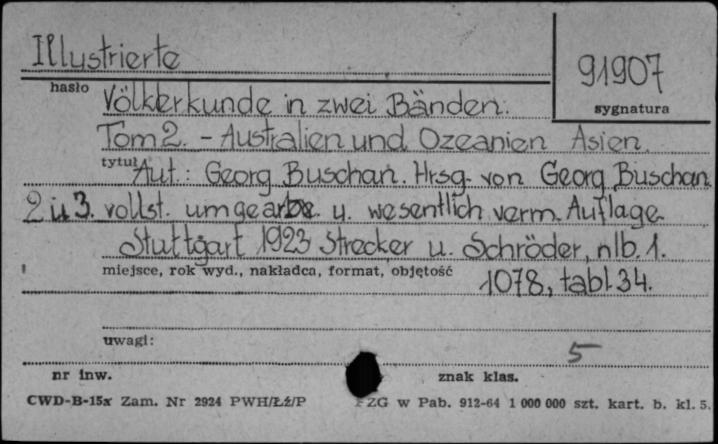 Illustrierte
91907
hasło
sygnatura
Völkerkunde in zwei Bänden.
Tom 2. - Australien und Ozeanien Asien.
tytuł
Aut.: Georg Buschan. Hrsg. von Georg Buschan
2 u 3. vollst. umgearbe. u. wesentlich verm. Auflage
Stuttgart 1923 Strecker u. Schröder, nlb. 1.
miejsce, rok wyd., nakładca, format, objętość
1078, tabl. 34.
uwagi:
5
nr inw.
znak klas.
CWD-B-15x Zam. Nr 2924 PWH/Łź/P
PZG w Pab. 912-64 1 000 000 szt. kart. b. kl. 5.